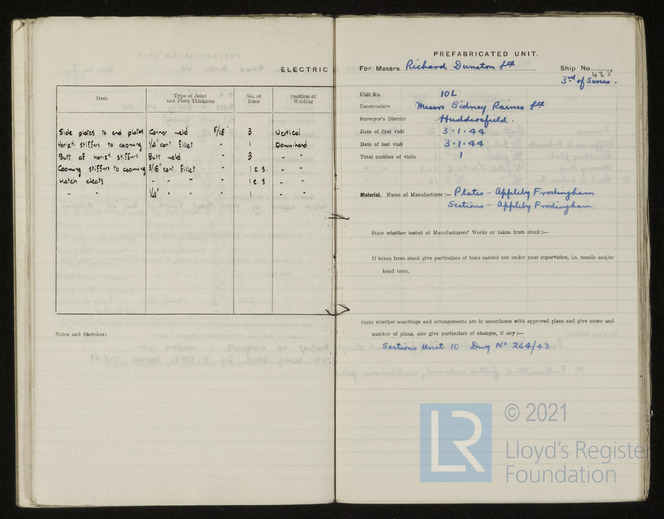 ELECTRIC
Item
Type of Joint and Plate Thickness
No. of Runs
Position of Welding
Side plates to end plates Corner weld 5/16" 3 Vertical
Horizl stiffrs to coaming 1/4" cont. fillet " 1 Down-hand
Butt of horizl stiffrs Butt weld " 3 - "
Coaming stiffrs to coaming 3/16" cont. fillet " 1 e.s. - "
Hatch cleats - " " " 1 e.s - "
- " 1/4" " " " 1 - "
Notes and Sketches:
PREFABRICATED UNIT.
For Messrs. Richard Dunston Ltd Ship No.
3rd of Series.
Unit No. 10L
Constructors Messrs Sidney Raines Ltd
Surveyor's District Huddersfield.
Date of first visit 3.1.44
Date of last visit 3.1.44
Total number of visits 1
Material. Name of Manufacturer:— Plates - Appleby Frodingham
Sections - Appleby Frodingham.
State whether tested at Manufacturers' Works or taken from stock:—
If taken from stock give particulars of tests carried out under your supervision, i.e. tensile and/or
bend tests.
State whether scantlings and arrangements are in accordance with approved plans and give name and
number of plans, also give particulars of changes, if any:—
Sections Unit 10 Dwg No 264/43
LR
© 2021
Lloyd's Register
Foundation